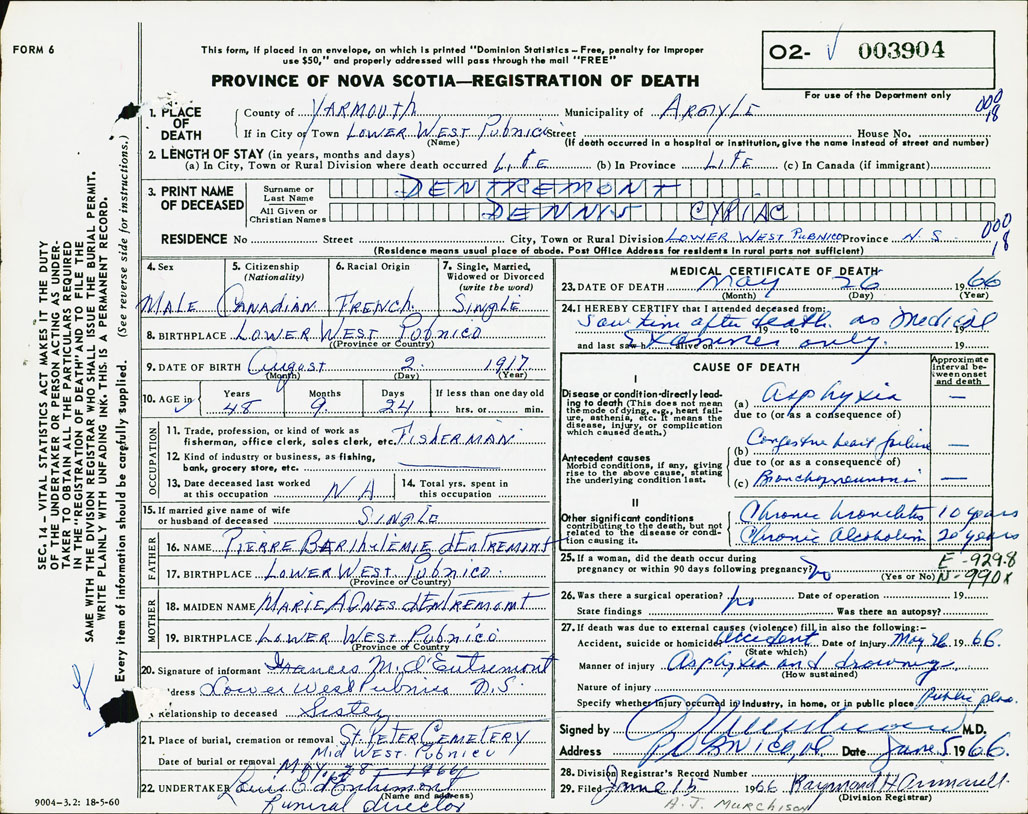 FORM 6
This form, if placed in an envelope, on which is printed "Dominion Statistics — Free, penalty for improper
use $50," and properly addressed will pass through the mail "FREE"
O2- √ 003904
For use of the Department only
PROVINCE OF NOVA SCOTIA—REGISTRATION OF DEATH
000
18
1. PLACE OF DEATH
County of YARMOUTH Municipality of ARGYLE
If in City or Town LOWER WEST PUBNICO Street House No.
(Name) (If death occurred in a hospital or institution, give the name instead of street and number)
2. LENGTH OF STAY (in years, months and days)
(a) In City, Town or Rural Division where death occurred LIFE (b) In Province LIFE (c) In Canada (if immigrant)
3. PRINT NAME OF DECEASED
Surname or Last Name DENTREMONT
All Given or Christian Names DENNIS CYRIAC
000
18
RESIDENCE No Street City, Town or Rural Division LOWER WEST PUBNICO Province N.S.
(Residence means usual place of abode. Post Office Address for residents in rural parts not sufficient)
SEC. 14 – VITAL STATISTICS ACT MAKES IT THE DUTY
OF THE UNDERTAKER OR PERSON ACTING AS UNDER-
TAKER TO OBTAIN ALL THE PARTICULARS REQUIRED
IN THE "REGISTRATION OF DEATH" AND TO FILE THE
SAME WITH THE DIVISION REGISTRAR WHO SHALL ISSUE THE BURIAL PERMIT.
WRITE PLAINLY WITH UNFADING INK. THIS IS A PERMANENT RECORD.
Every item of information should be carefully supplied. (See reverse side for instructions.)
4. Sex
MALE
5. Citizenship
(Nationality)
CANADIAN
6. Racial Origin
FRENCH
7. Single, Married,
Widowed or Divorced
(write the word)
SINGLE
8. BIRTHPLACE LOWER WEST PUBNICO
(Province or Country)
9. DATE OF BIRTH August 2 1917
(Month) (Day) (Year)
10. AGE in
Years Months Days If less than one day old
48 9 24 hrs. or min.
OCCUPATION
11. Trade, profession, or kind of work as
fisherman, office clerk, sales clerk, etc. FISHERMAN
12. Kind of industry or business, as fishing,
bank, grocery store, etc.
13. Date deceased last worked
at this occupation NA
14. Total yrs. spent in
this occupation
15. If married give name of wife
or husband of deceased SINGLE
FATHER
16. NAME PIERRE BARTHELEMIE d'ENTREMONT
17. BIRTHPLACE LOWER WEST PUBNICO
(Province or Country)
MOTHER
18. MAIDEN NAME MARIE AGNES d'ENTREMONT
19. BIRTHPLACE LOWER WEST PUBNICO
(Province or Country)
20. Signature of informant Frances M. d'Entremont
Address Lower West Pubnico N.S.
Relationship to deceased Sister
21. Place of burial, cremation or removal ST. PETER CEMETERY
MID WEST PUBNICO
Date of burial or removal MAY 28 - 1966
22. UNDERTAKER Louis E. d'Entremont
(Name and address)
Funeral director
9004-3.2: 18-5-60
MEDICAL CERTIFICATE OF DEATH
23. DATE OF DEATH May 26 1966
(Month) (Day) (Year)
24. I HEREBY CERTIFY that I attended deceased from:
Saw him after death as Medical
19 to 19
and last saw h alive on 19
Examiner only.
CAUSE OF DEATH
Approximate
interval be-
tween onset
and death
I
Disease or condition directly lead-
ing to death (This does not mean
the mode of dying, e.g., heart fail-
ure, asthenia, etc. It means the
disease, injury, or complication
which caused death.)
(a) Asphyxia —
due to (or as a consequence of)
Antecedent causes
Morbid conditions, if any, giving
rise to the above cause, stating
the underlying condition last.
(b) Congestive heart failure —
due to (or as a consequence of)
(c) Bronchopneumonia —
II
Other significant conditions
contributing to the death, but not
related to the disease or condi-
tion causing it.
Chronic bronchitis 10 years
Chronic Alcoholism 20 years
25. If a woman, did the death occur during
pregnancy or within 90 days following pregnancy? No
(Yes or No)
E-929.8
N-990X
26. Was there a surgical operation? No Date of operation 19
State findings Was there an autopsy?
27. If death was due to external causes (violence) fill in also the following:—
Accident, suicide or homicide accident Date of injury May 26 1966.
(State which)
Manner of injury Asphyxia and drowning
(How sustained)
Nature of injury
Specify whether injury occurred in industry, in home, or in public place Public place
Signed by M.D.
Address PUBNICO, Date June 5 1966.
28. Division Registrar's Record Number
29. Filed June 15 1966 Raymond H
(Division Registrar)
A. J. MURCHISON